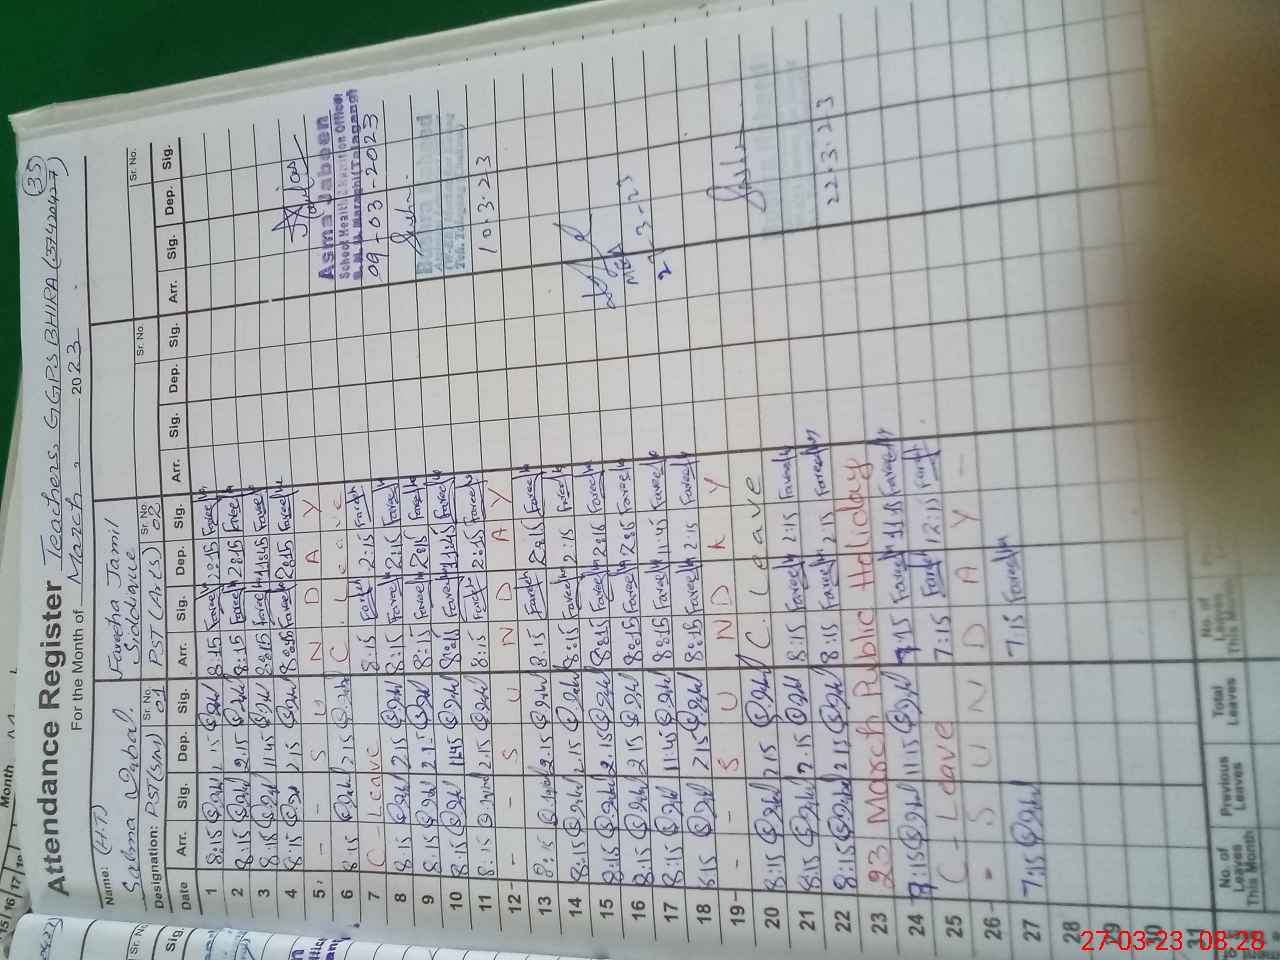 Attendance Register Teachers. GGPS BHIRA (37420427) 35
For the Month of March, 2023
Name: (H.T) Sr. No. Sr. No.
Salma Iqbal. Fareeha Jamil Siddique
Designation: PST(S/M) Sr. No. 01 PST (Arts) Sr. No. 02
Date Arr. Sig. Dep. Sig. Arr. Sig. Dep. Sig. Arr. Sig. Dep. Sig. Arr. Sig. Dep. Sig.
1 8:15 2:15 8:15 Fareeha 2:15 Fareeha
2 8:15 2:15 8:15 Fareeha 2:15 Fareeha
3 8:15 11:45 8:15 Fareeha 11:45 Fareeha
4 8:15 2:15 8:15 Fareeha 2:15 Fareeha
5 - - S U N D A Y
6 8:15 2:15 C. Leave
7 C-Leave 8:15 Fareeha 2:15 Fareeha
8 8:15 2:15 8:15 Fareeha 2:15 Fareeha
9 8:15 2:15 8:15 Fareeha 2:15 Fareeha
10 8:15 11:45 8:15 Fareeha 11:45 Fareeha
11 8:15 2:15 8:15 Fareeha 2:15 Fareeha
12 - - - S U N D A Y
13 8:15 2:15 8:15 Fareeha 2:15 Fareeha
14 8:15 2:15 8:15 Fareeha 2:15 Fareeha
15 8:15 2:15 8:15 Fareeha 2:15 Fareeha
16 8:15 2:15 8:15 Fareeha 2:15 Fareeha
17 8:15 11:45 8:15 Fareeha 11:45 Fareeha
18 8:15 2:15 8:15 Fareeha 2:15 Fareeha
19 - - - S U N D A Y
20 8:15 2:15 C. Leave
21 8:15 2:15 8:15 Fareeha 2:15 Fareeha
22 8:15 2:15 8:15 Fareeha 2:15 Fareeha
23 23 March Public Holiday
24 7:15 11:15 7:15 Fareeha 11:15 Fareeha
25 C-Leave 7:15 Fareeha 12:15 Fareeha
26 - S U N D A Y -
27 7:15 7:15 Fareeha
28
29
30
31
Asma Jabeen
School Health & Nutrition Officer
09-03-2023
10.3.23
MEA
22.3.23
No. of Leaves This Month Previous Leaves Total Leaves No. of Leaves This Month
Month
15 16 17 18
27-03-23 08:28